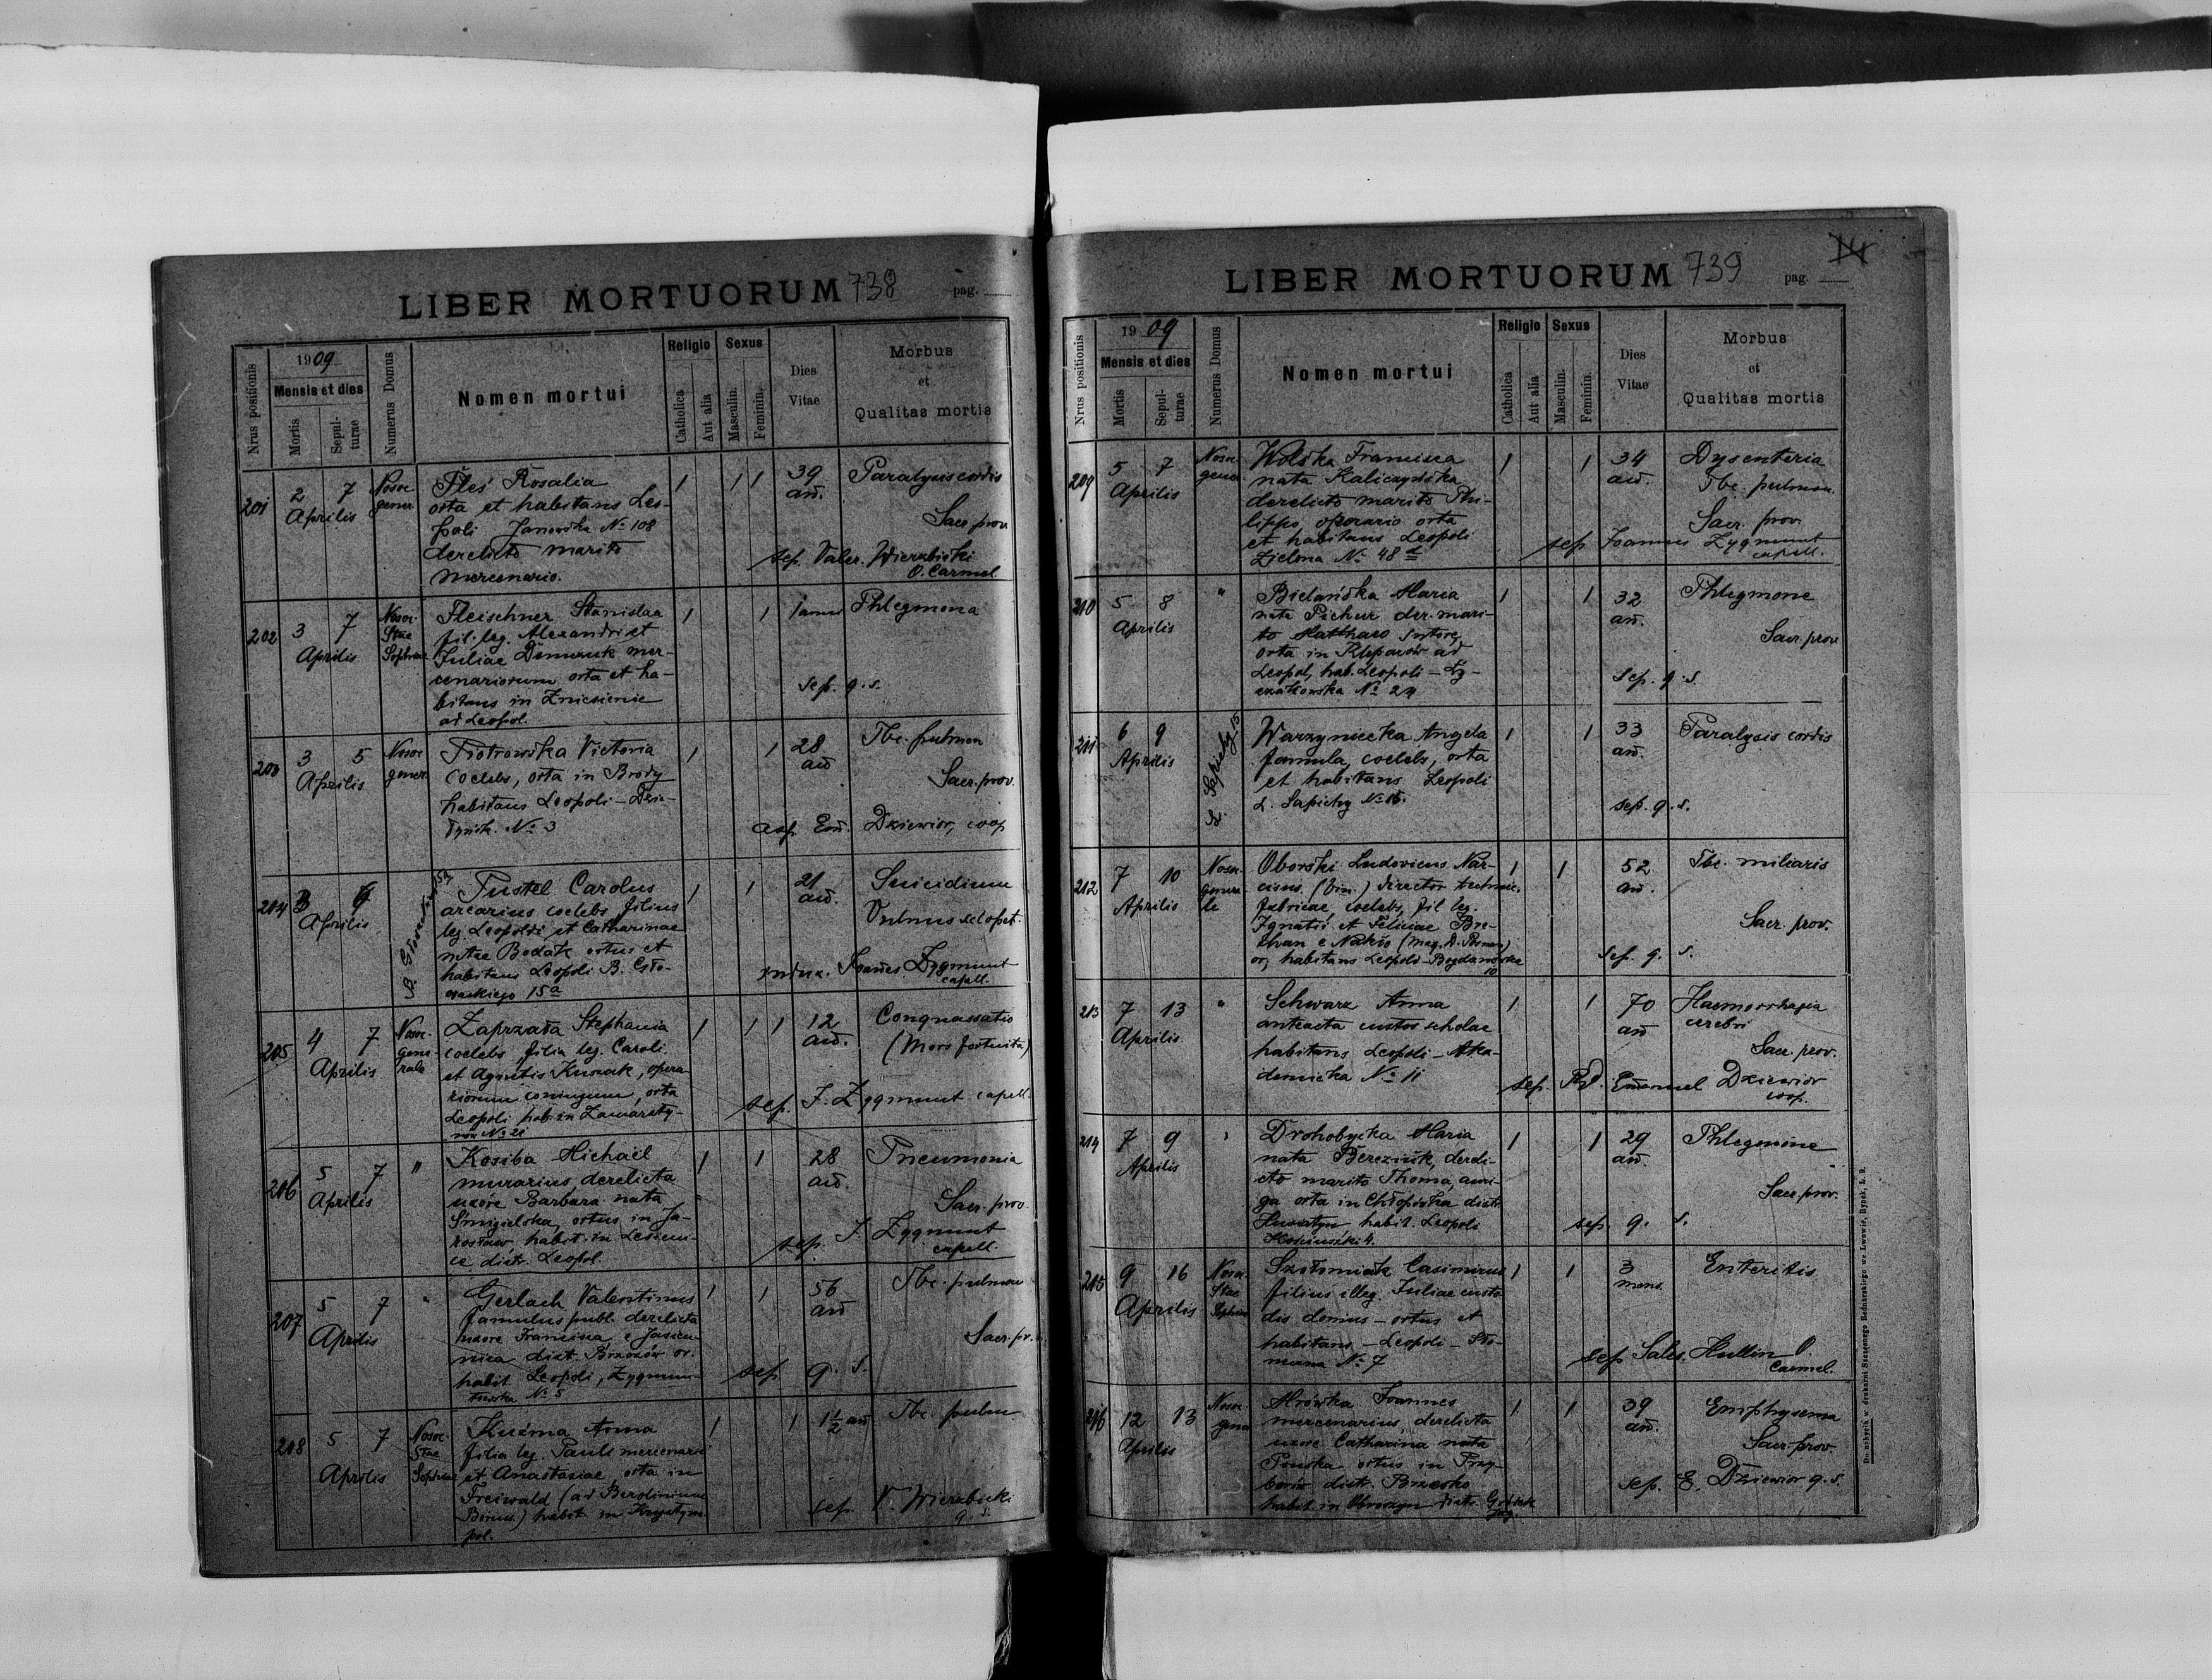 LIBER MORTUORUM 738 pag.
Nrus positionis
1909
Mensis et dies
Mortis
Sepulturae
Numerus Domus
Nomen mortui
Religio
Catholica
Aut alia
Sexus
Masculin.
Feminin.
Dies Vitae
Morbus
et
Qualitas mortis
201 2 7 Aprilis Nosoc. gener.
Fleś Rosalia
orta et habitans Leo-
poli Janowska № 108
derelicto marito
mercenario.
1 1 1 39 an.
Paralysis cordis
Sacr. prov.
sep. Valer. Wierzbicki
O. Carmel.
202 3 7 Aprilis Nosoc. Stae Sophiae
Fleischner Stanislaa
fil. leg. Alexandri et
Juliae Demczuk mer-
cenariorum orta et ha-
bitans in Zniesienie
ad Leopol.
1 1 1 annus
Phlegmona
sep. q. s.
203 3 5 Aprilis Nosoc. gener.
Piotrowska Victoria
coelebs, orta in Brody
habitans Leopoli
№ 3
1 1 28 an.
Tbc. pulmon
Sacr. prov.
Em. Dziewior, coop
204 3 6 Aprilis
Pustel Carolus
arcarius coelebs filius
leg. Leopoldi et Catharinae
natae Bodak ortus et
habitans Leopoli B. Gło-
wackiego 15a
1 1 21 an.
Suicidium
Vulnus sclopet.
Joannes Zygmunt
capell.
205 4 7 Aprilis Nosoc. generale
Zaprzała Stephania
coelebs, filia leg. Caroli
et Agnetis Kuszak, opera
riorum coniugum, orta
Leopoli hab. in Zamarsty-
nów № 21
1 1 1 12 an.
Conquassatio
(Mors fortuita)
sep. J. Zygmunt capell.
206 5 7 Aprilis "
Kosiba Michaël
murarius, derelicta
uxore Barbara nata
Śmigielska, ortus in Ja-
rosław habit. in Lesieni-
ce distr. Leopol.
1 1 28 an.
Pneumonia
Sacr. prov.
sep. J. Zygmunt
capell.
207 5 7 Aprilis "
Gerlach Valentinus
famulus publ. derelicta
uxore Francisca e Jasien-
nica distr. Brzozów or.
habit. Leopoli, Zygmun-
towska № 5
1 1 56 an
Tbc. pulmon
Sacr. pr.
sep. q. s.
208 5 7 Aprilis Nosoc. Stae Sophiae
Kuźma Anna
filia leg. Pauli mercenarii
et Anastasiae orta in
Freiwald (ad Berolinium
Boruss.) habit. in Krzystyno
pol.
1 1 1½ an
Tbc. pulm
sep. V. Wierzbicki
q. s.
LIBER MORTUORUM 739 pag.
Nrus positionis
1909
Mensis et dies
Mortis
Sepulturae
Numerus Domus
Nomen mortui
Religio
Catholica
Aut alia
Sexus
Masculin.
Feminin.
Dies Vitae
Morbus
et
Qualitas mortis
209 5 7 Aprilis Nosoc. gener.
Wolska Francisca
nata Kaliczyńska
derelicto marito Phi-
lippo, operario orta
et habitans Leopoli
Zielona № 48
1 1 34 an.
Dysenteria
Tbc. pulmon.
Sacr. prov.
sep Joannes Zygmunt
capell.
210 5 8 Aprilis "
Bielańska Maria
nata Pichur der. mari-
to Matthaeo sutore,
orta in Kleparów ad
Leopol, hab. Leopoli - Ły-
czakowska №
1 1 32 an.
Phlegmone
Sacr. prov
sep. q. s.
211 6 9 Aprilis L. Sapiehy 15
Warzyniecka Angela
famula, coelebs, orta
et habitans Leopoli
L. Sapiehy № 15.
1 1 33 an.
Paralysis cordis
sep. q. s.
212 7 10 Aprilis Nosoc. generale
Oborski Ludovicus Nar-
cisus (bin.) director technic.
fabricae, coelebs, fil leg.
Ignatii et Feliciae
e Nakło (Mag. D. Posnan)
or, habitans Leopoli Bogdanówka
10
1 1 52 an.
Tbc. miliaris
Sacr. prov.
sep. q. s.
213 7 13 Aprilis "
Schwarz Anna
anteacta custos scholae
habitans Leopoli - Aka-
demicka № 11
1 1 70 an
Haemorrhagia
cerebri
Sacr. prov.
sep. Rd. Emanuel Dziewior
coop.
214 7 9 Aprilis "
Drohobycka Maria
nata Bereziuk, dereli-
cto marito Thoma, auri-
ga orta in Chłopówka distr.
Husiatyn habit. Leopoli
Kościuszki 4.
1 1 29 an.
Phlegmone
Sacr. prov.
sep. q. s.
215 9 16 Aprilis Nosoc. Stae Sophiae
Szołomiak Casimirus
filius illeg. Juliae custo
dis domus - ortus et
habitans - Leopoli - Sło-
neczna № 7
1 1 3 mens.
Enteritis
sep Sales. Hullin O.
Carmel.
216 12 13 Aprilis Nosoc. gener
Mrówka Joannes
mercenarius, derelicta
uxore Catharina nata
ortus in Przy-
borów distr. Brzesko
habit. in Obroszyn distr. Gródek
Jag.
1 1 39 an.
Emphysema
Sacr. prov.
sep. E. Dziewior q. s.
Do nabycia w drukarni Szczęsnego Bednarskiego we Lwowie, Rynek, L. 9.